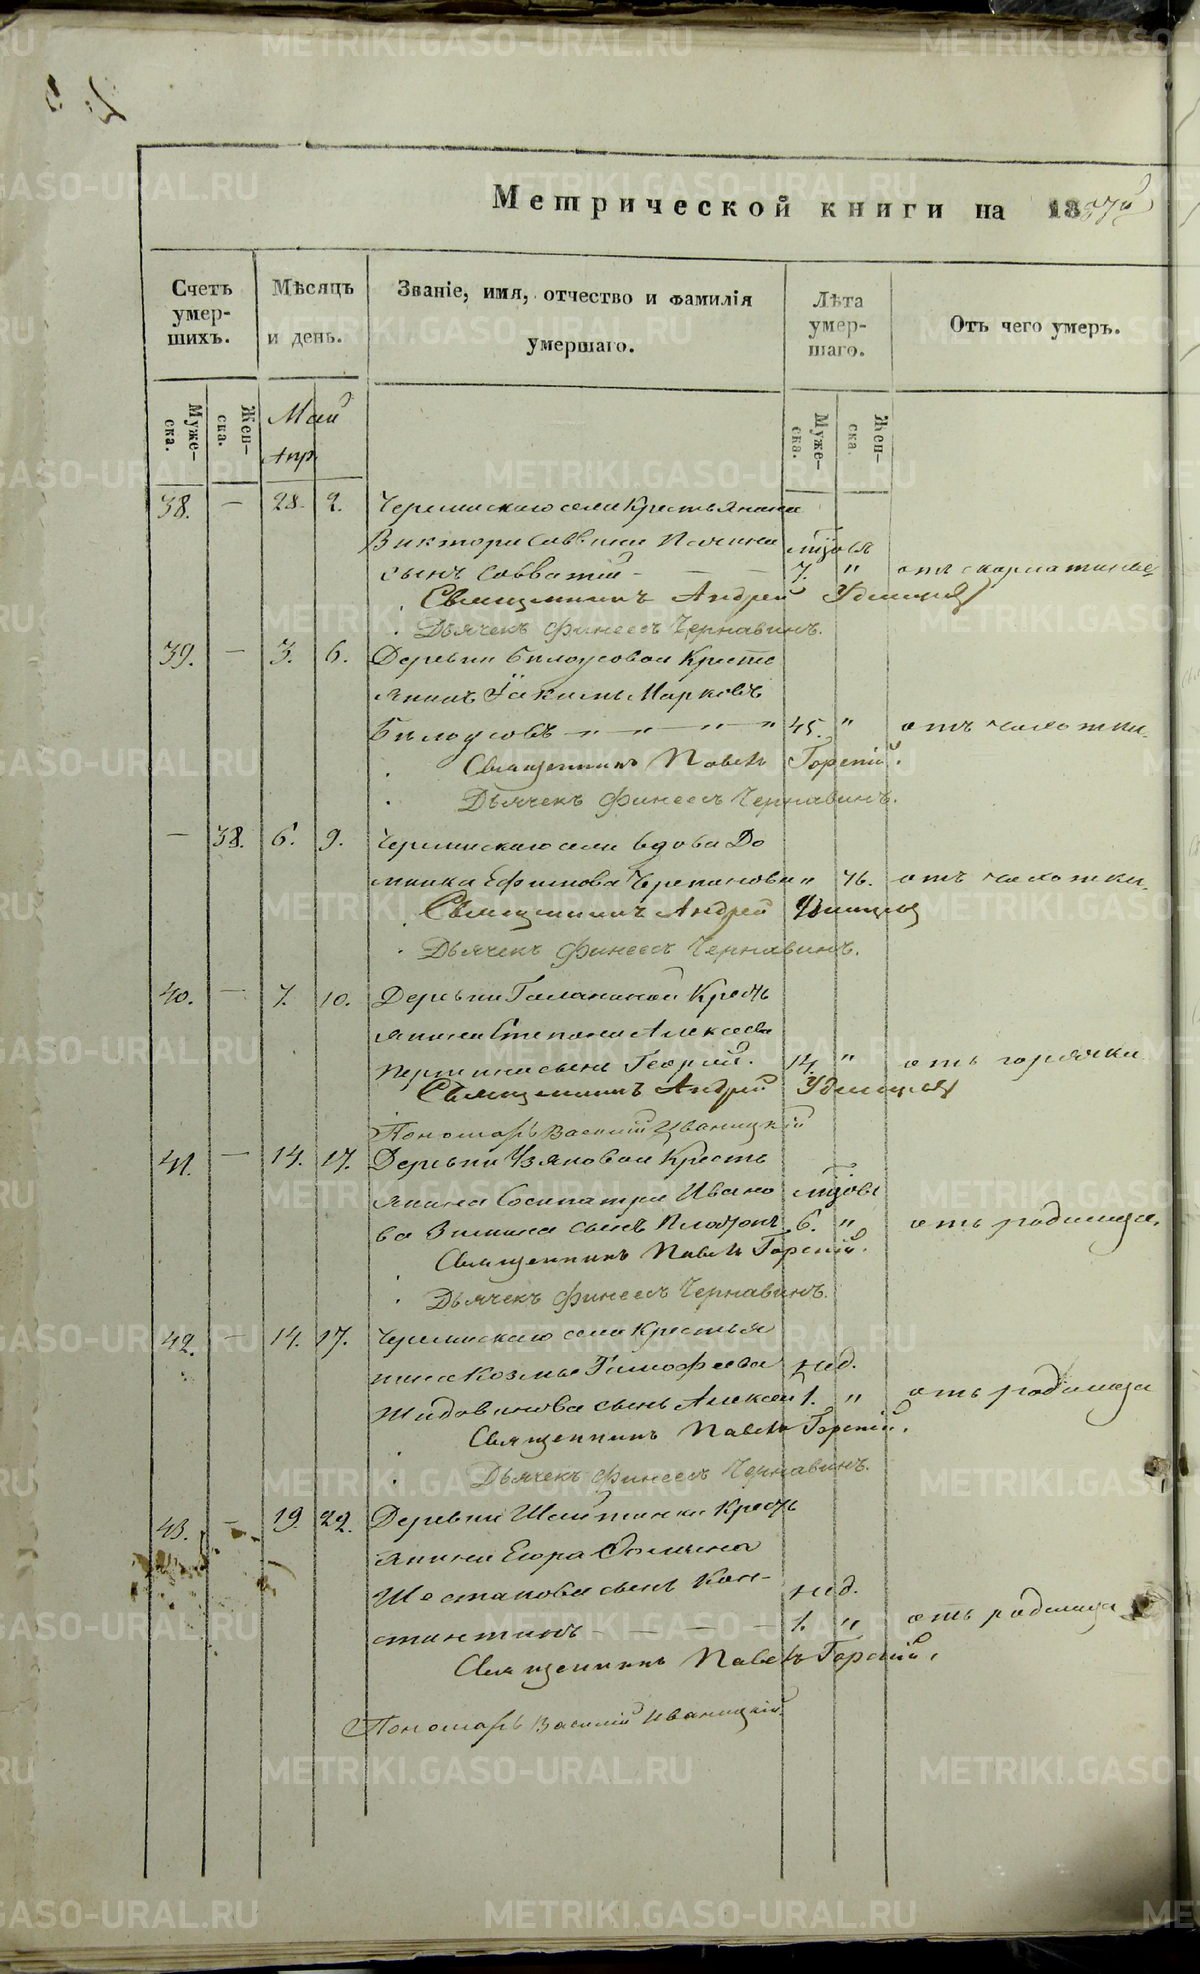 Метрической книги на 1837й
Счетъ умер-шихъ.
Мѣсяцъ и день.
Званіе, имя, отчество и фамилія умершаго.
Лѣта умер-шаго.
Отъ чего умеръ.
Муже-ска.
Жен-ска.
Май
Апр.
Муже-ска.
Жен-ска.
38. — 28. 2. села Крестьянина
сынъ Савватій — — — 7. "
Священникъ Андрей Удинцевъ
Дьячекъ Финеесъ Чернавинъ.
39. — 3. 6. Деревни Билоусовой Кресть
янинъ Іакимъ Марковъ
Билоусовъ — " — " — " — " 45. " отъ чахотки.
Священникъ Павелъ Горскій.
Дьячекъ Финеесъ Чернавинъ.
— 38. 6. 9. села вдова До
мника Ефимова Черепанова " 76. отъ чахотки.
Священникъ Андрей Удинцевъ
Дьячекъ Финеесъ Чернавинъ.
40. — 7. 10. Деревни Галаниной Кресть
янина Степана Алексѣева
сынъ Георгій. 14 " отъ горячки
Священникъ Андрей Удинцевъ
Пономарь Василій Иваницкій
41. — 14. 17. Деревни Кресть
янина Сосипатра Ивано
ва Зимина сынъ Платонъ 6. " отъ родимца.
Священникъ Павелъ Горскій.
Дьячекъ Финеесъ Чернавинъ.
42. — 14. 17. села Крестья
нина Козмы Тимофеева нед.
сынъ Алексѣй 1. " отъ родимца
Священникъ Павелъ Горскій.
Дьячекъ Финеесъ Чернавинъ.
43. — 19. 22. Деревни Шайтанки Кресть
янина Егора
Шестакова сынъ Кон-
нед.
стантинъ — — — — 1. " отъ родимца
Священникъ Павелъ Горскій.
Пономарь Василій Иваницкій.
METRIKI.GASO-URAL.RU